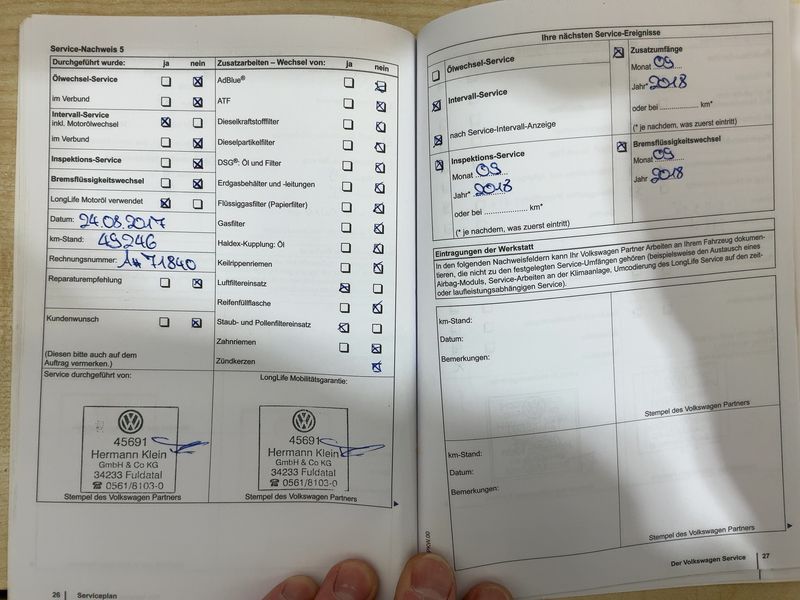 Service-Nachweis 5
Durchgeführt wurde: ja nein
Ölwechsel-Service
im Verbund
Intervall-Service
inkl. Motorölwechsel
im Verbund
Inspektions-Service
Bremsflüssigkeitswechsel
LongLife Motoröl verwendet
Datum: 24.08.2017
km-Stand: 49246
Rechnungsnummer: A# 71840
Reparaturempfehlung
Kundenwunsch
(Diesen bitte auch auf dem
Auftrag vermerken.)
Zusatzarbeiten – Wechsel von: ja nein
AdBlue®
ATF
Dieselkraftstofffilter
Dieselpartikelfilter
DSG®: Öl und Filter
Erdgasbehälter und -leitungen
Flüssiggasfilter (Papierfilter)
Gasfilter
Haldex-Kupplung: Öl
Keilrippenriemen
Luftfiltereinsatz
Reifenfüllflasche
Staub- und Pollenfiltereinsatz
Zahnriemen
Zündkerzen
Service durchgeführt von:
45691
Hermann Klein
GmbH & Co KG
34233 Fuldatal
☎ 0561/8103-0
Stempel des Volkswagen Partners
LongLife Mobilitätsgarantie:
45691
Hermann Klein
GmbH & Co KG
34233 Fuldatal
☎ 0561/8103-0
Stempel des Volkswagen Partners
26 | Serviceplan
Ihre nächsten Service-Ereignisse
Ölwechsel-Service
Intervall-Service
nach Service-Intervall-Anzeige
Inspektions-Service
Monat 09
Jahr* 2018
oder bei .................. km*
(* je nachdem, was zuerst eintritt)
Zusatzumfänge
Monat 09
Jahr* 2018
oder bei .................. km*
(* je nachdem, was zuerst eintritt)
Bremsflüssigkeitswechsel
Monat 09
Jahr 2018
Eintragungen der Werkstatt
In den folgenden Nachweisfeldern kann Ihr Volkswagen Partner Arbeiten an Ihrem Fahrzeug dokumen-
tieren, die nicht zu den festgelegten Service-Umfängen gehören (beispielsweise den Austausch eines
Airbag-Moduls, Service-Arbeiten an der Klimaanlage, Umcodierung des LongLife Service auf den zeit-
oder laufleistungsabhängigen Service).
km-Stand:
Datum:
Bemerkungen:
Stempel des Volkswagen Partners
km-Stand:
Datum:
Bemerkungen:
Stempel des Volkswagen Partners
Der Volkswagen Service | 27